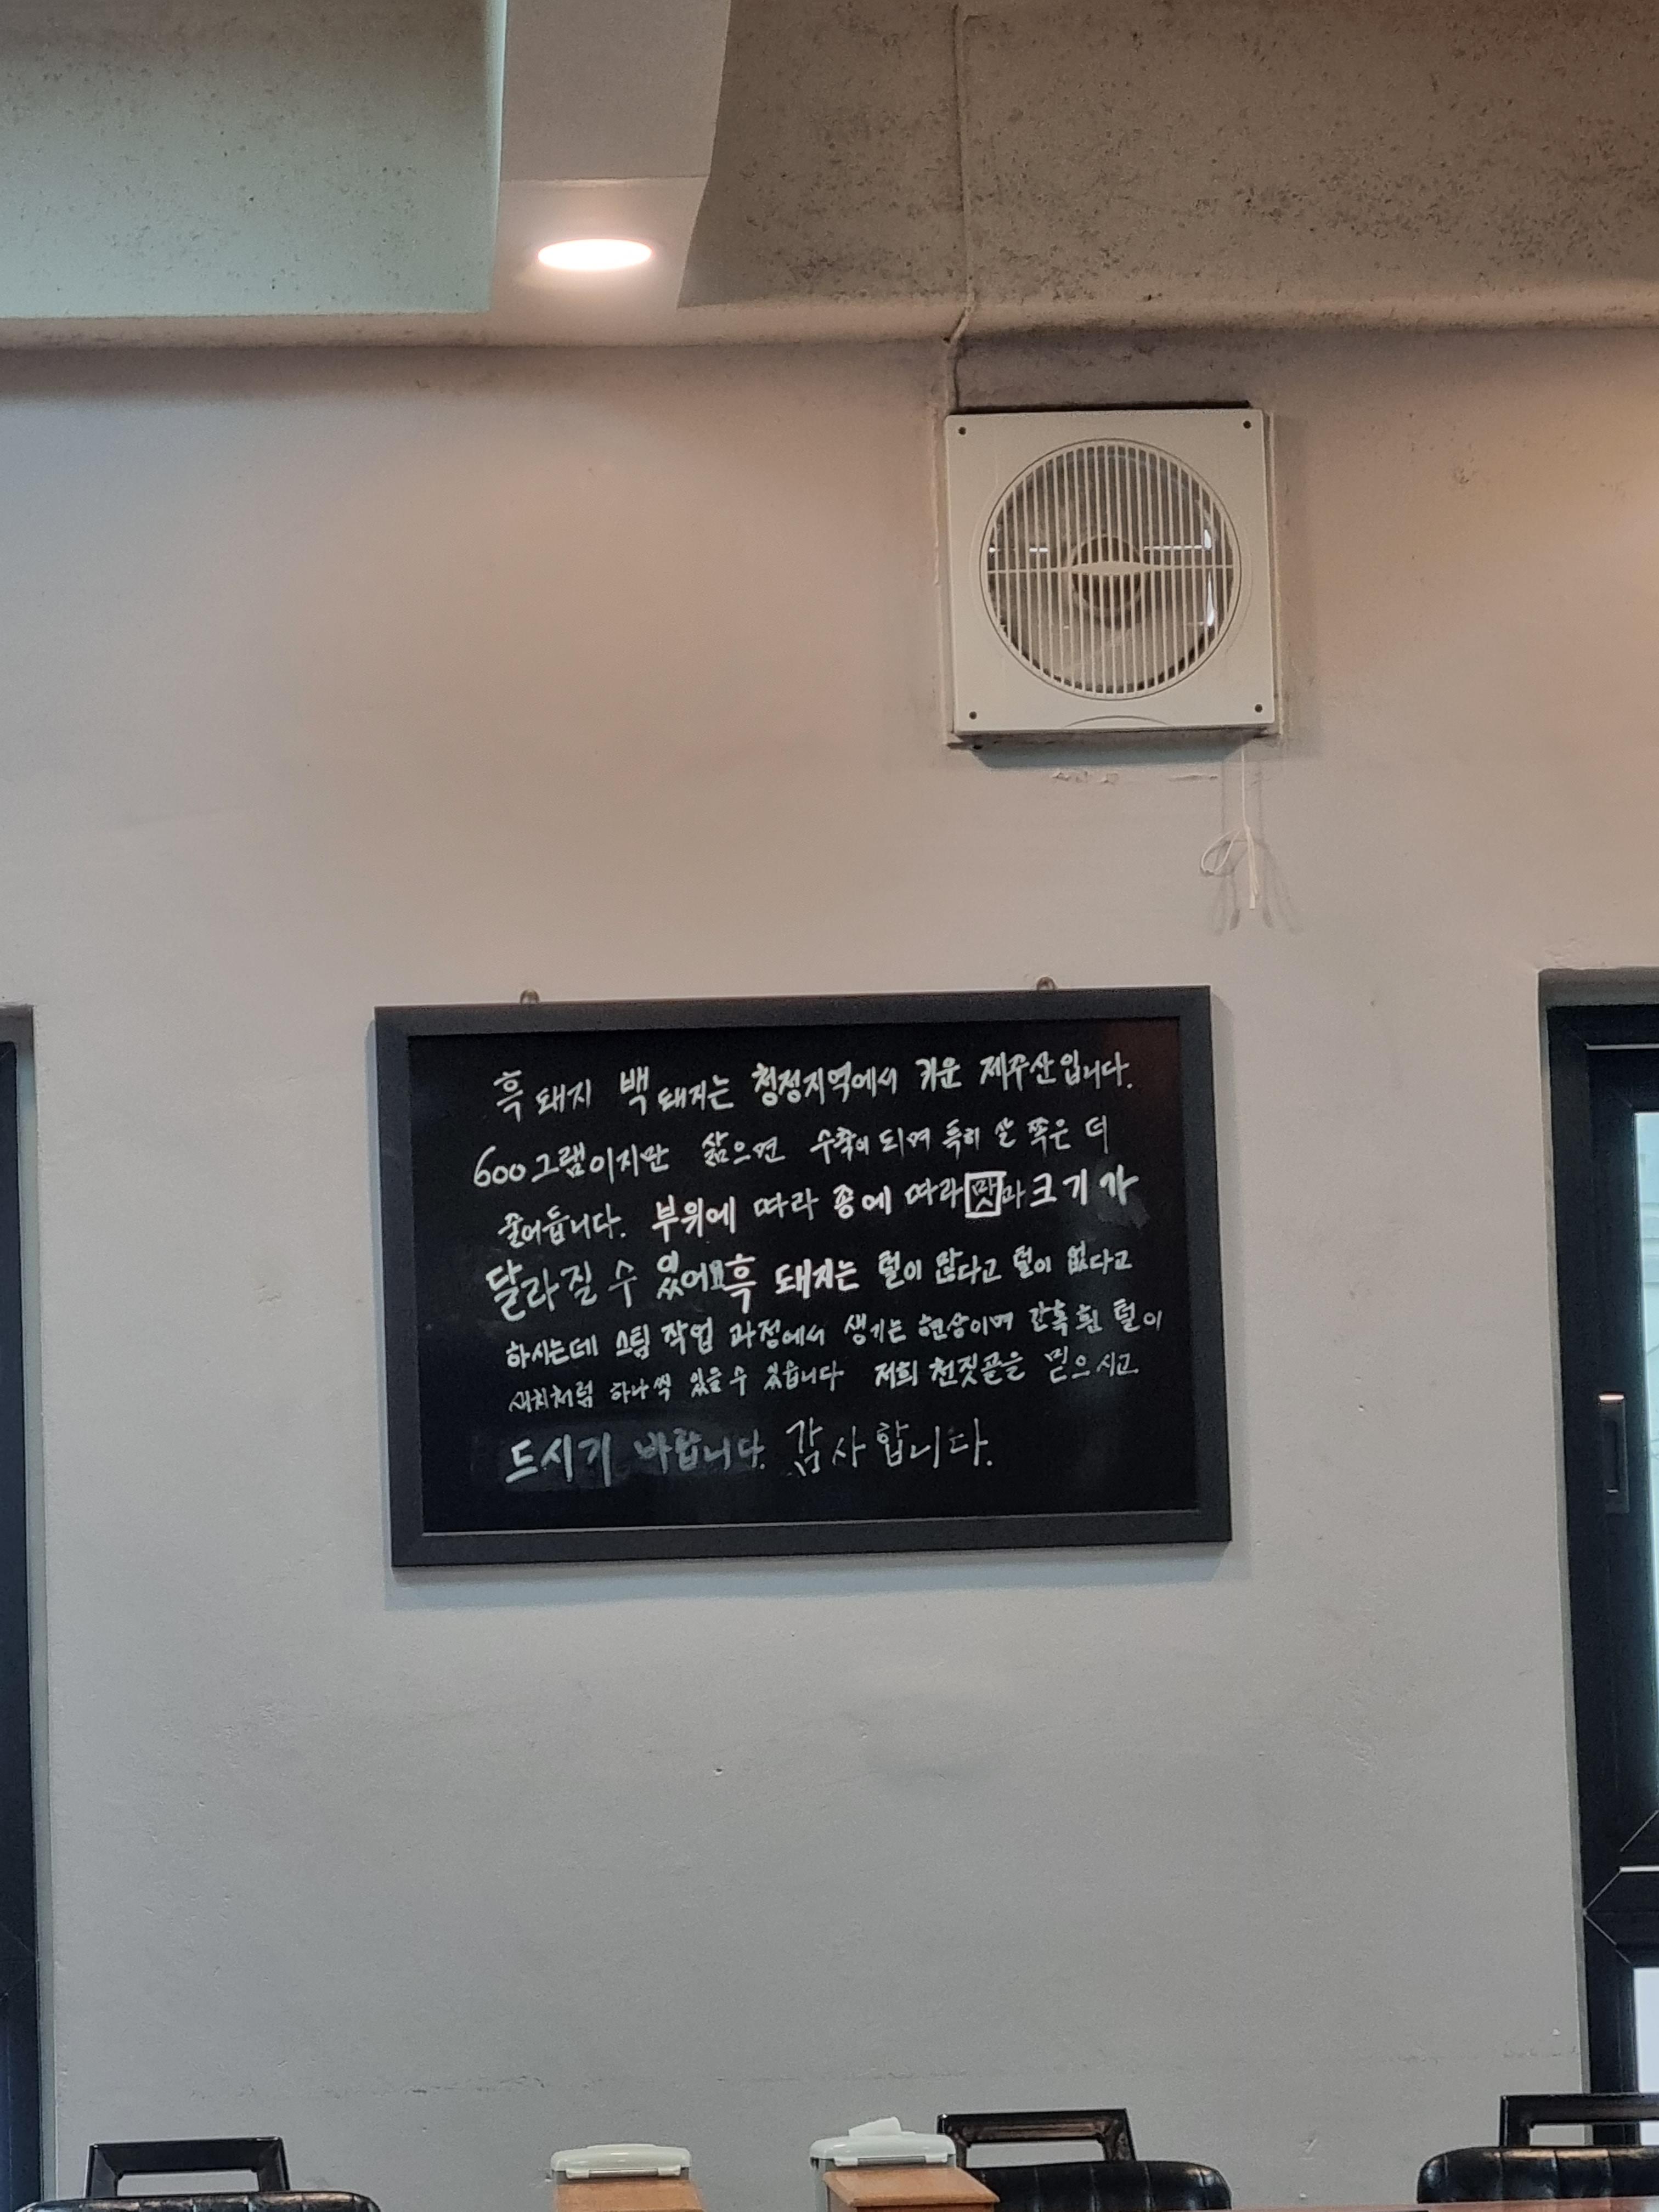 흑돼지 백돼지는 청정지역에서 키운 제주산입니다.
600그램이지만 삶으면 수축이 되며 특히 살 쪽은 더
줄어듭니다. 부위에 따라 종에 따라 맛과 크기가
달라질 수 있어요 흑돼지는 털이 많다고 털이 없다고
하시는데 스팀 작업 과정에서 생기는 현상이며 간혹 흰 털이
새치처럼 하나씩 있을 수 있읍니다 저희 천짓골을 믿으시고
드시기 바랍니다. 감사합니다.